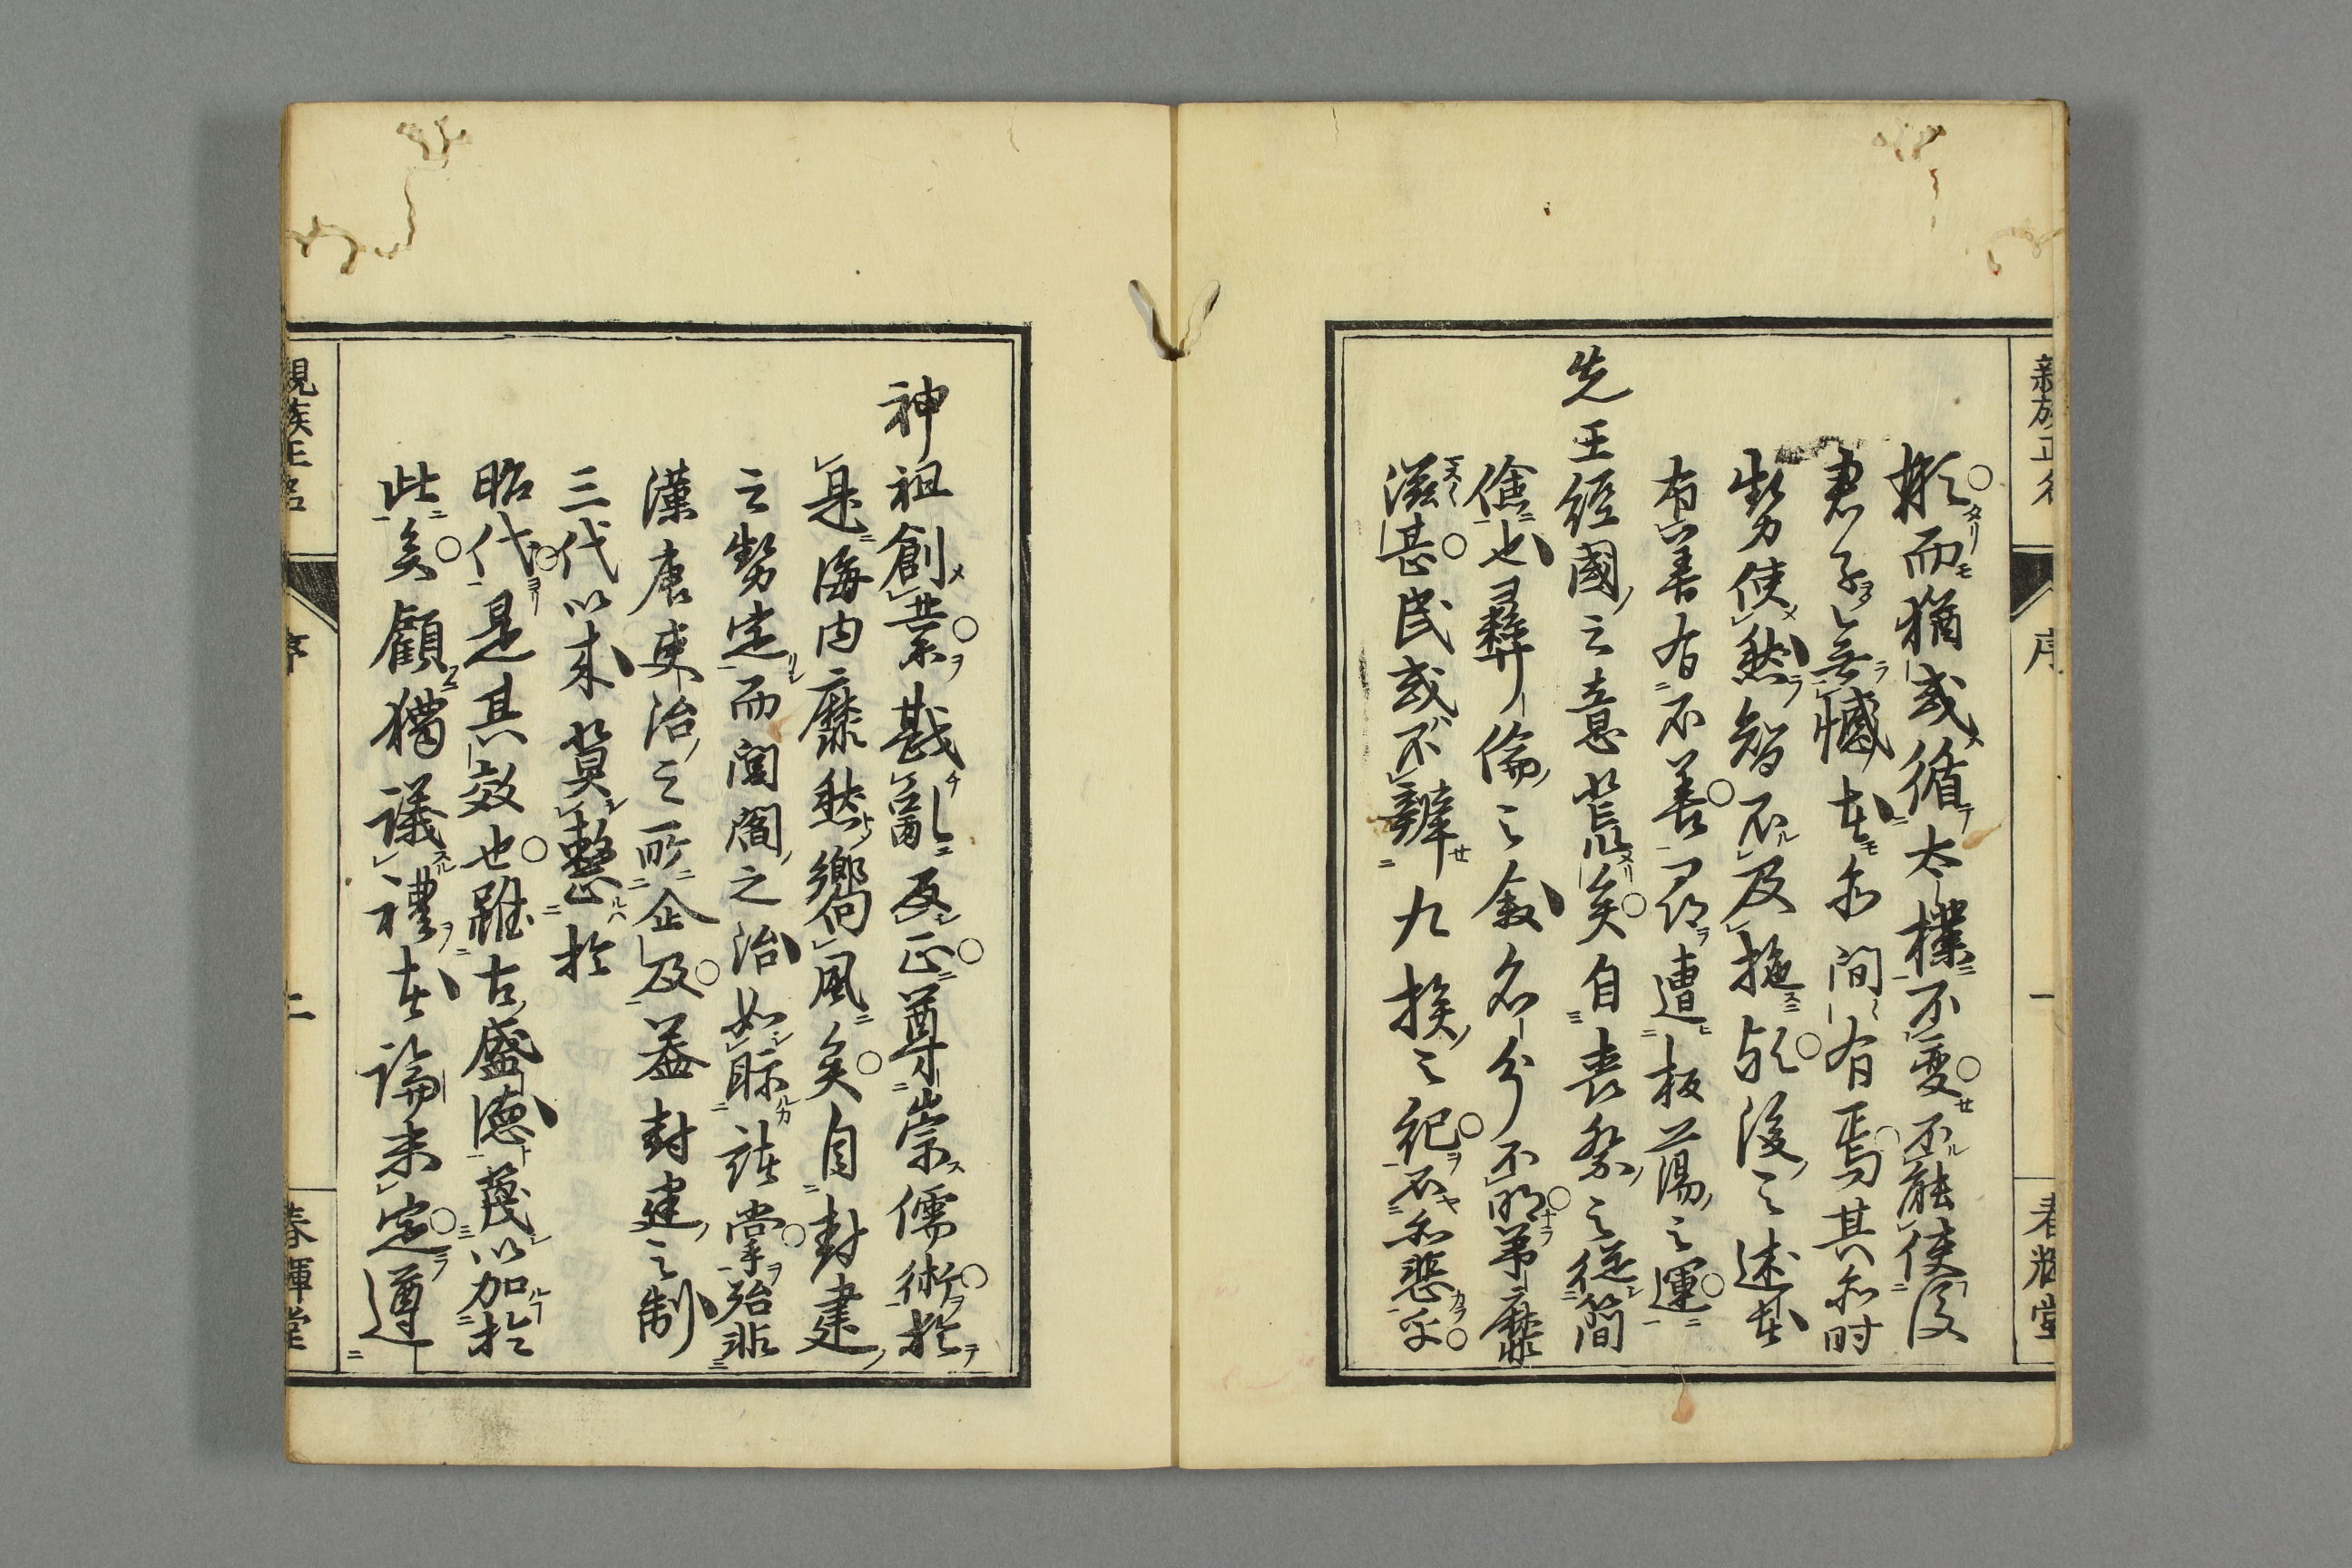 親族正名 序 一 春暉堂
而猶或循太樸不変不能使後
君子無憾在亦間有焉其亦时
勢使然智不及施歟後之述在
有善有不善尋遭板蕩之運
先王經國之意荒矣自喪祭之從簡
儉也彝倫之敘名分不明第靡
滋甚民或不辨九族之紀不亦悲乎
神祖創業戡亂反正尊崇儒術於
是海内靡然嚮風矣自封建
之勢定而閨閤之治如眎諸掌殆非
漢唐吏治之所企及蓋封建之制
三代以来莫整於
昭代是其效也雖古盛德蔑以加於
此矣顧猶議禮在論未定遵
親族正名 序 二 春暉堂